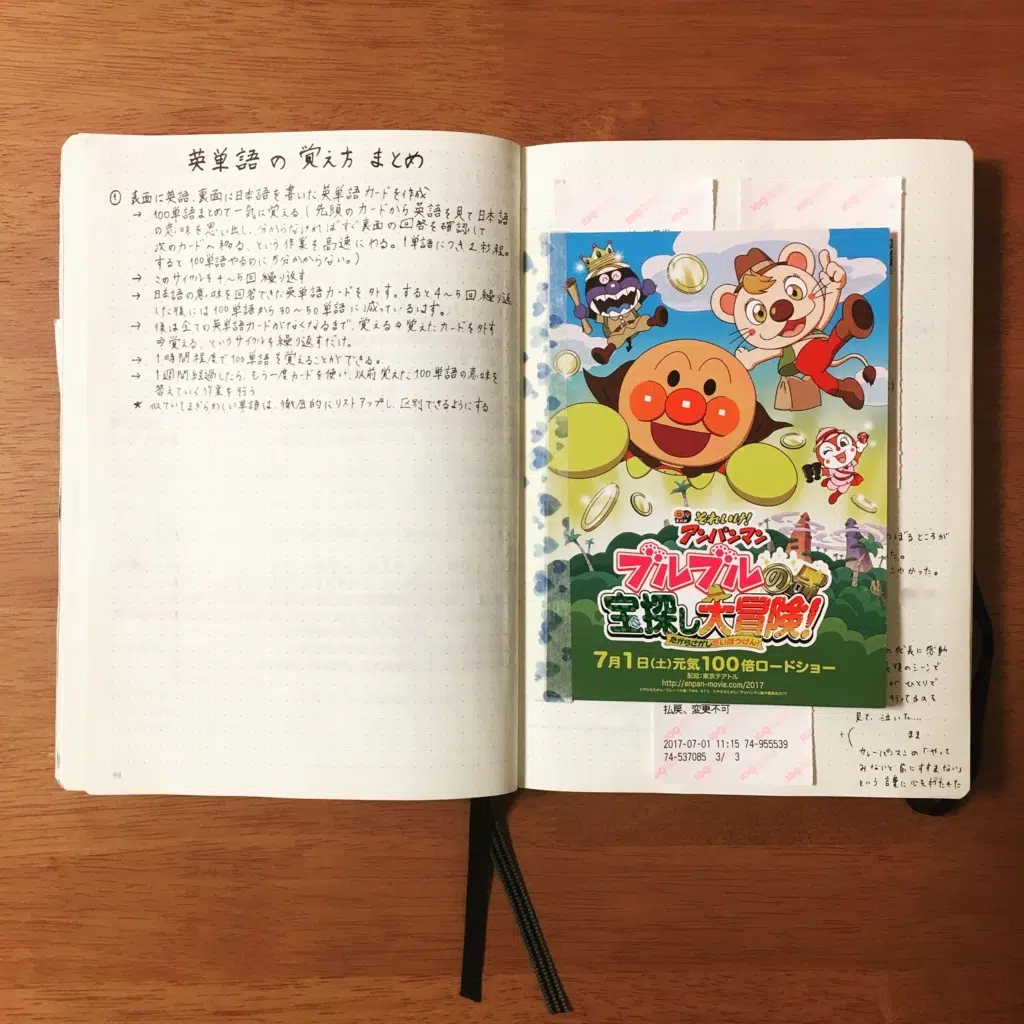 英単語の覚え方 まとめ
① 表面に英語、裏面に日本語を書いた英単語カードを作成
→ 100単語まとめて一気に覚える(先頭のカードから英語を見て日本語
の意味を思い出し、分からなければすぐ裏面の回答を確認して
次のカードへ移る、という作業を高速にやる。1単語につき2秒程。
すると100単語やるのに5分かからない。)
→ このサイクルを4〜5回繰り返す
→ 日本語の意味を回答できた英単語カードを外す。すると4〜5回繰り返
した後には100単語から30〜50単語に減っているはず。
→ 後は全ての英単語カードがなくなるまで、覚える⇒覚えたカードを外す
⇒覚える、というサイクルを繰り返すだけ。
→ 1時間程度で100単語を覚えることができる。
→ 1週間経過したら、もう一度カードを使い、以前覚えた100単語の意味を
答えていく作業を行う
★ 似ていてまぎらわしい単語は、徹底的にリストアップし、区別できるようにする
98
それいけ!
アンパンマン
ブルブルの
宝探し大冒険!
たからさがしだいぼうけん
7月1日(土)元気100倍ロードショー
配給:東京テアトル
http://anpan-movie.com/2017
払戻、変更不可
2017-07-01 11:15 74-955539
74-537085 3/ 3
ぼるところが
た。
こゃかった。
の成長に感動
最後のシーンで
ひとりで
見て、泣いた…
+( まま
カレーパンマンの「やって
みないと前にすすまない」
という言葉に心をうたれた